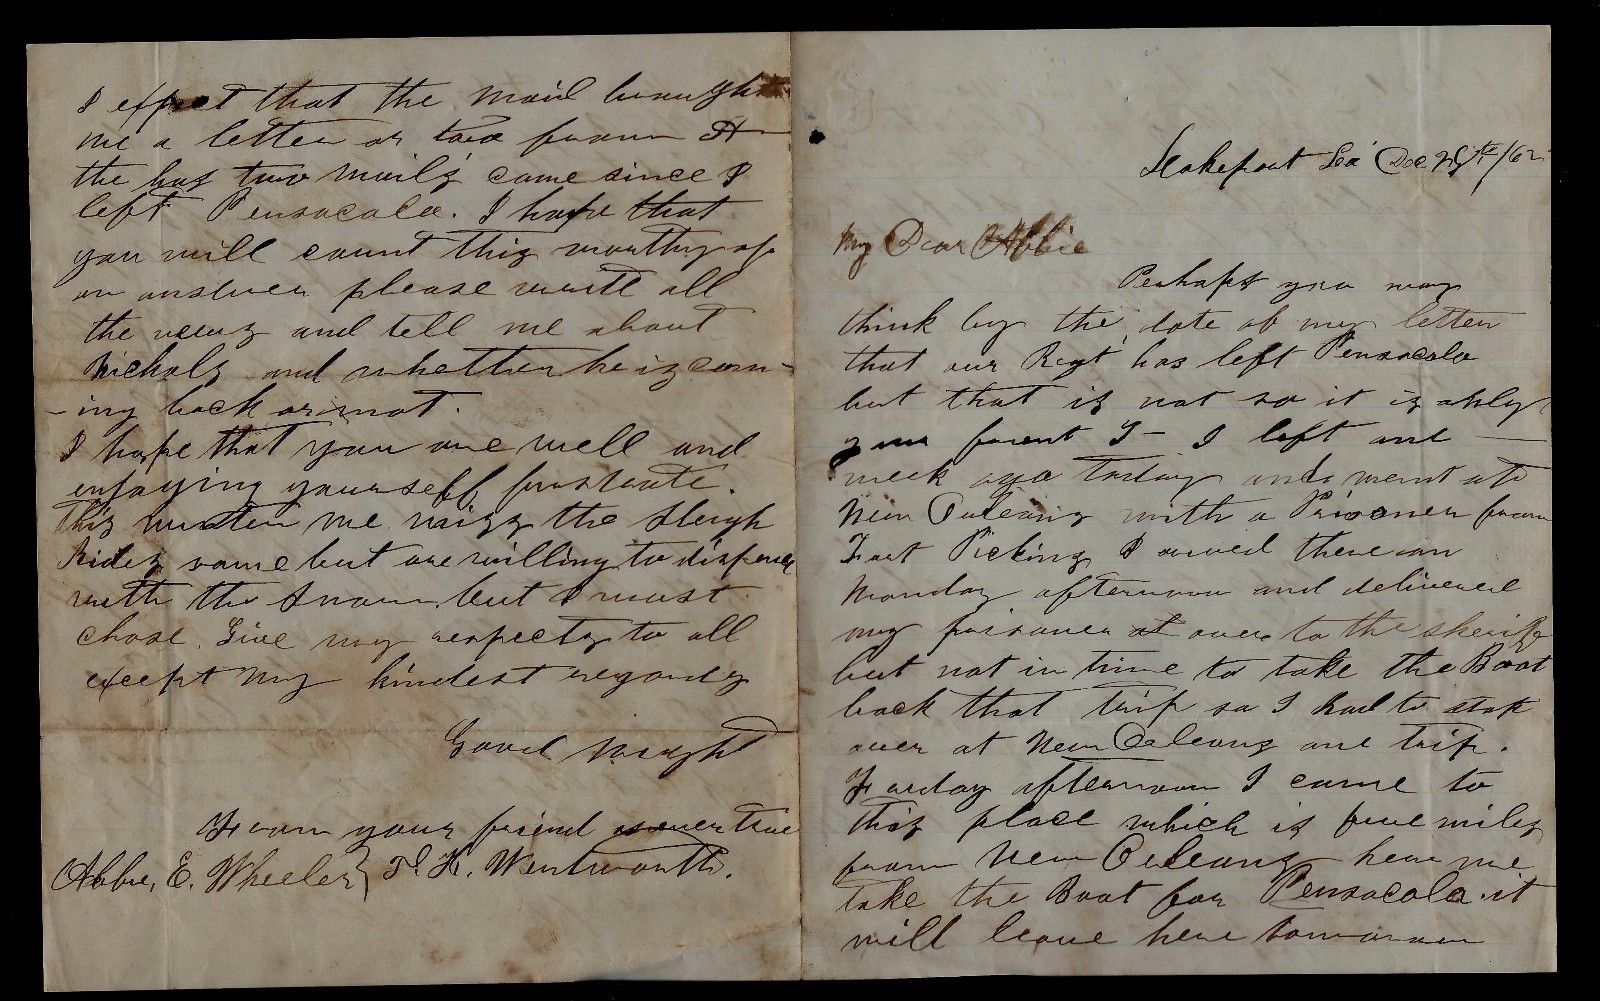 Lakeport Lea' Dec 28th/62
My Dear Abbie
Perhaps you may
think by the date of my letter
that our Regt has left Pensacola
but that is not so it is only
I left one
week ago today and went to
New Orleans with a Prisoner from
Fort Pickins I arived there on
Monday afternoon and delivered
my prisoner over to the sheriff
but not in time to take the Boat
back that trip so I had to stop
over at New Orleans one trip.
Friday afternoon I came to
this place which is five miles
from New Orleans here we
take the Boat for Pensacola it
will leave here tomorrow
I expect that the mail brought
me a letter or two from
the has two mails came since I
left Pensacola. I hope that
you will count this worthy of
an answer please write all
the news and tell me about
Nichols and whether he is com-
-ing back or not.
I hope that you are well and
enjoying yourself firstrate.
This winter we miss the Sleigh
Rides some but are willing to dispence
with the Snow. but I must
close. Give my respects to all
except my kindest regards
Good Night
From your friend ever true
Abbie, E. Wheeler} T. K. Wentworth.